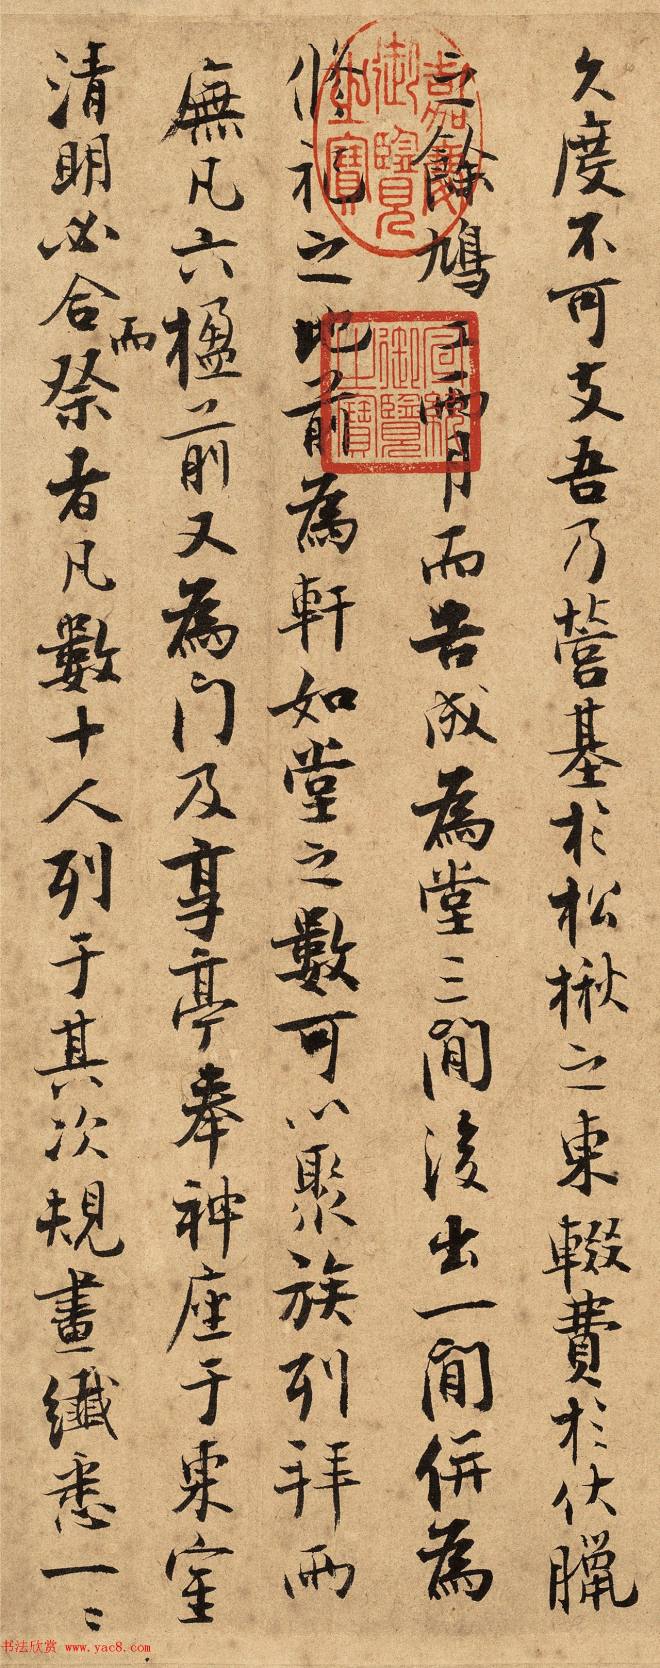 久度不可支吾乃營基於松楸之東輟費於伏臘
之餘鳩工一兩月而告成為堂三間後出一間併為
修祀之地前為軒如堂之數可以聚族列拜兩
廡凡六楹前又為門及享亭奉神座于東室
而
清明必合祭者凡數十人列于其次規畫纖悉一〻
嘉慶御覽之寶
宣統御覽之寶
书法欣赏 www.yac8.com